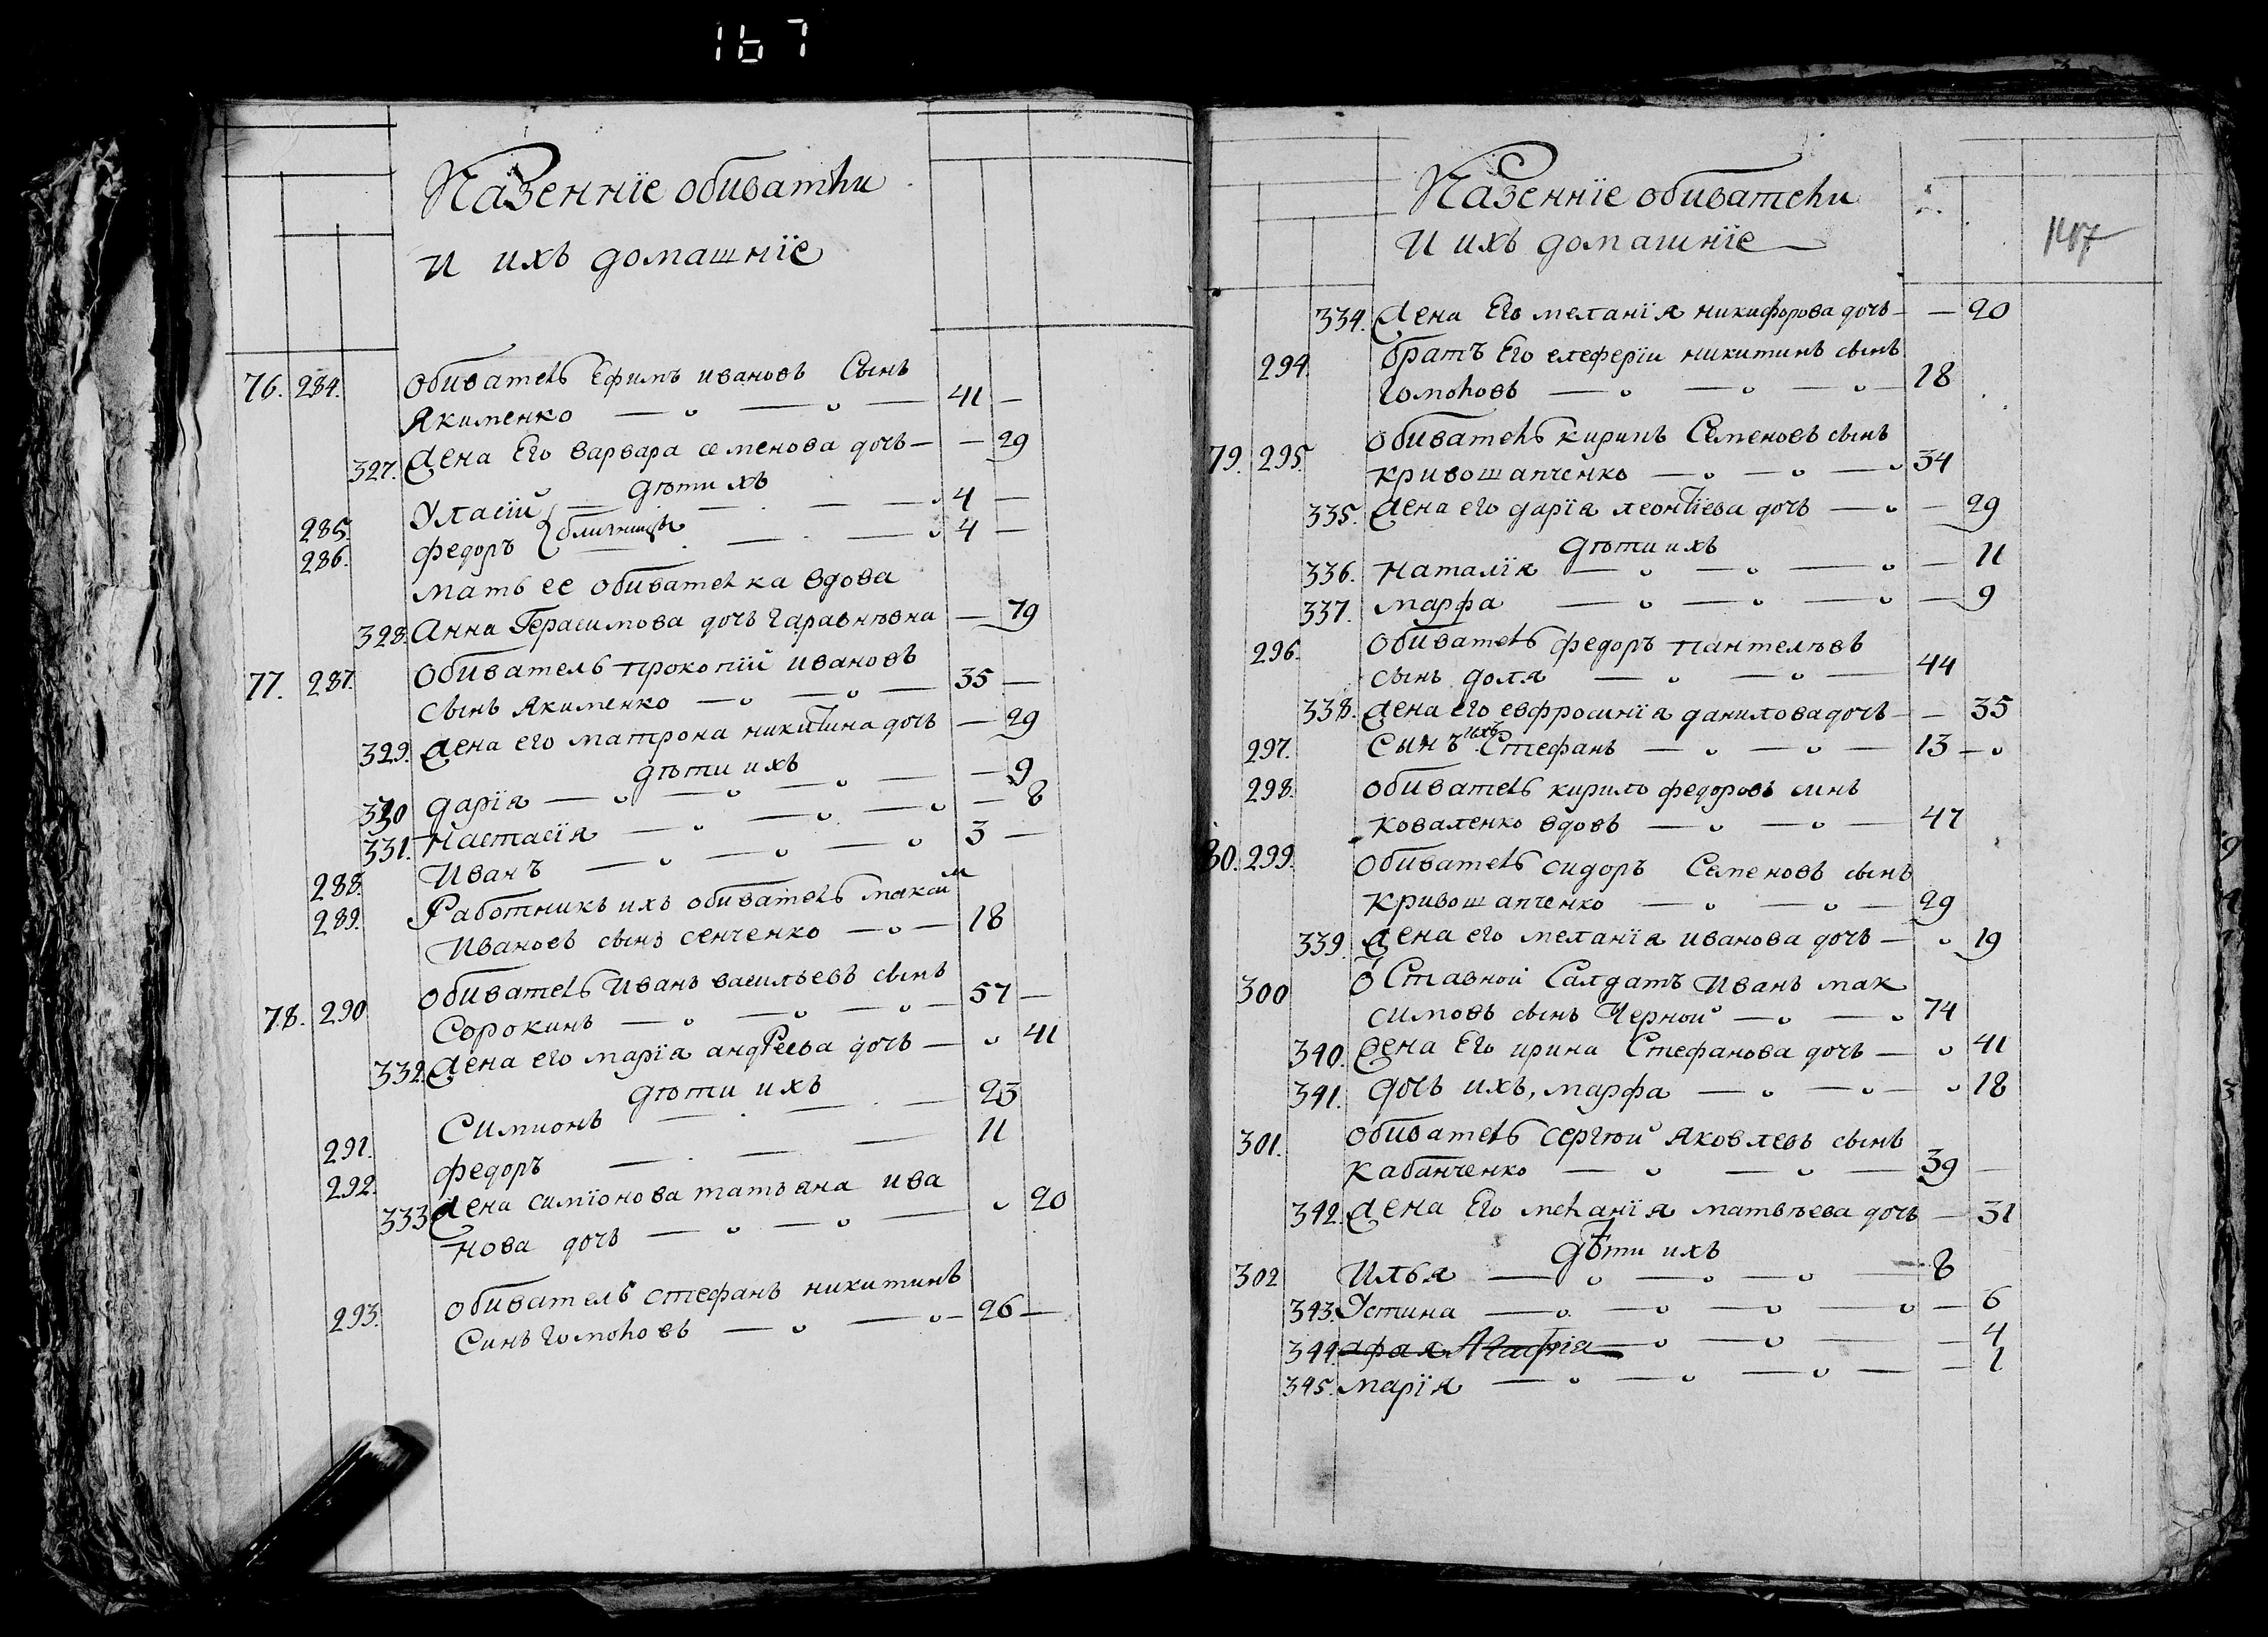 167
Казеннїе обиватели
и ихъ домашнїе
76. 284. обиватель Ефимъ ивановъ Сынъ
Якименко 41 —
327. Жена Его варвара семенова дочь — — 29
дѣти ихъ
285. Уласїй 4 —
286. федоръ } близнецы 4 —
мать ее обивателка вдова
328. Анна Герасимова дочь — 79
77. 287. Обиватель прокопїй ивановъ
сынъ якименко 35 —
329. жена его матрона никитина дочь — 29
дѣти ихъ
330 дарїя — 9
331. Настасїя — 8
288. Иванъ 3 —
289. Работникъ ихъ обиватель маѯим
Ивановъ сынъ сенченко 18
78. 290 обиватель Иванъ васильевъ сынъ
Сорокинъ 57 —
332. Жена его марїя андреева дочь — 41
дѣти ихъ
291. Симионъ 23
292. федоръ 11
333 жена симїонова татьяна ива
нова дочь 20
293. обиватель стефанъ никитинъ
Синъ гомоловъ 26 —
Казеннїе обиватели
И ихъ домашнїе
147
334. Жена Его меланїя никифорова дочь — — 20
294. братъ Его елеферїи никитинъ сынъ
гомоловъ 18
79. 295. обиватель кирилъ Семеновъ сынъ
кривошапченко 34
335. жена его дарїя леонтїева дочь — 29
дѣти ихъ
336. Наталїя — 11
337. марфа — 9
296. обиватель федоръ пантелѣевъ
сынъ доля 44
338. жена его евфросинїя данилова дочь — — 35
297. Сынъ ихъ Стефанъ 13 —
298. обиватель кирило федоровъ синъ
коваленко вдовъ 47
80. 299. обиватель сидоръ Семеновъ сынъ
кривошапченко 29
339. жена его меланїя иванова дочь — 19
300 ѿставной Салдатъ Иванъ мак
симовъ сынъ Черной 74
340. жена Его ирина Стефанова дочь — 41
341. дочь ихъ, марфа 18
301. обиватель сергѣй Яковлевъ сынъ
кабанченко 39 —
342. Жена Его меланїя матвѣева дочь — 31
дѣти ихъ
302 Илья 8
343. Устина — 6
344. Агафїя — 4
345. марїя — 1